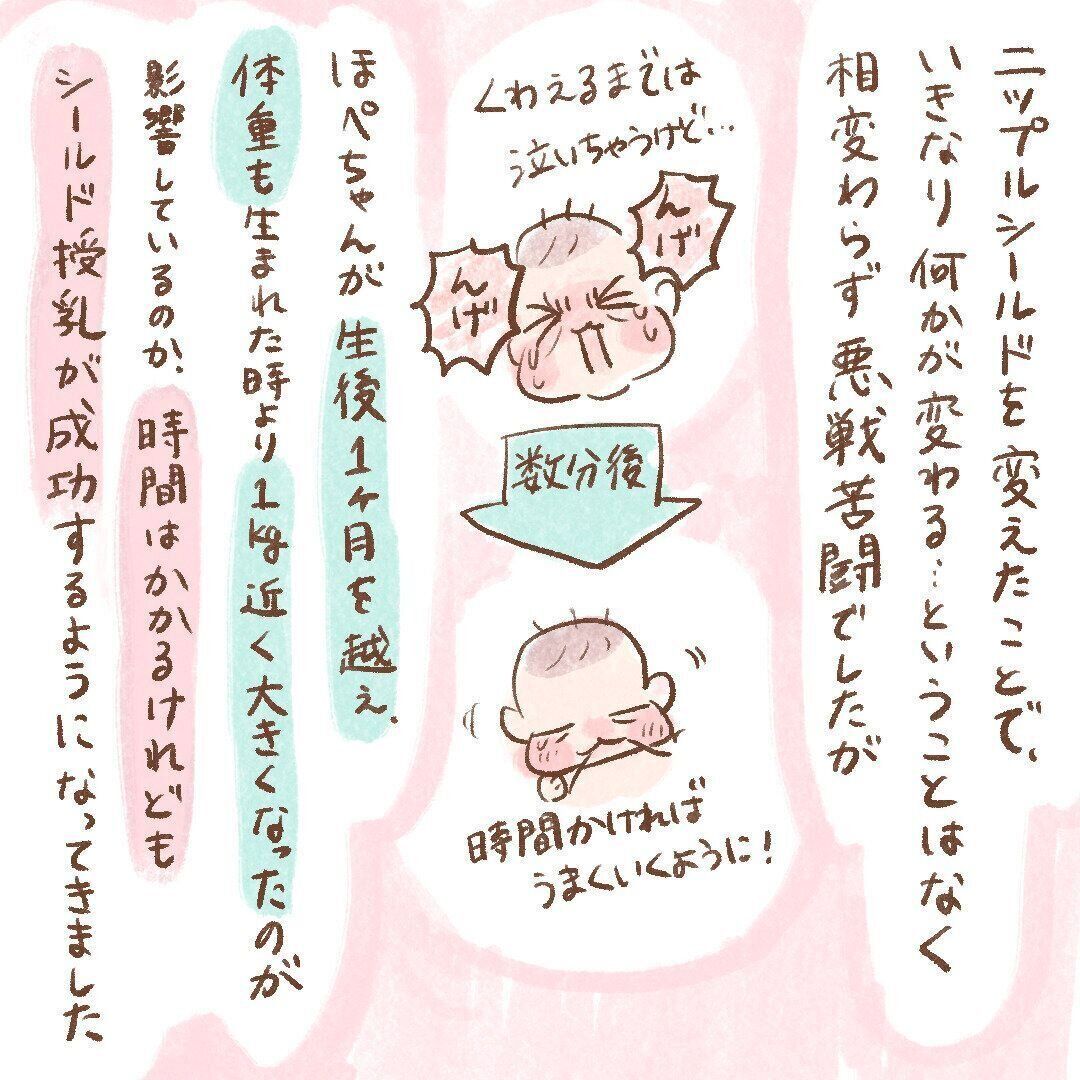 ニップルシールドを変えたことで、
いきなり何かが変わる…ということはなく
相変わらず悪戦苦闘でしたが
くわえるまでは
泣いちゃうけど…
んげ
んげ
数分後
時間かければ
うまくいくように!
ほぺちゃんが生後1ヶ月を越え、
体重も生まれた時より1kg近く大きくなったのが
影響しているのか、
時間はかかるけれども
シールド授乳が成功するようになってきました